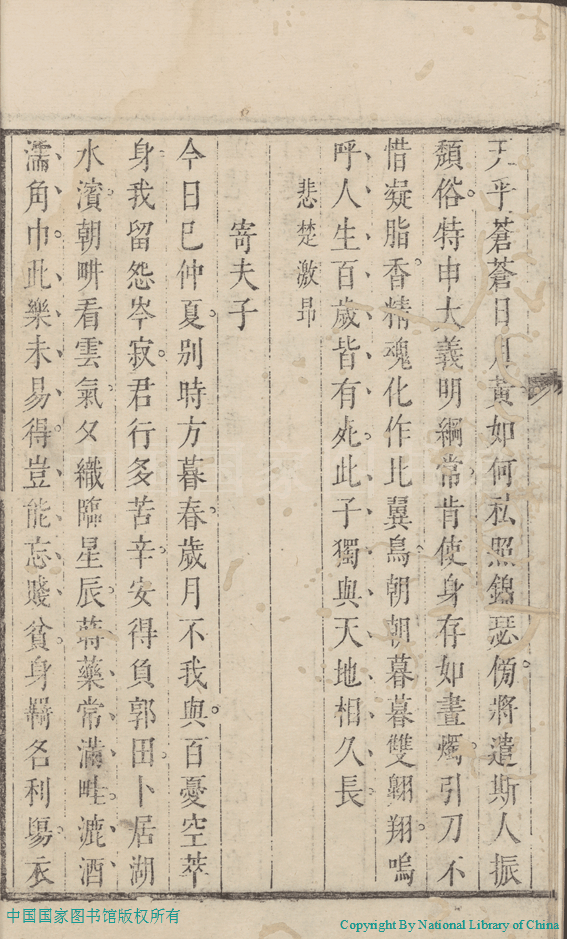 天乎蒼蒼日月黃如何私照錦瑟傍將遣斯人振
頽俗特申大義明綱常肯使身存如晝燭引刀不
惜凝脂香精魂化作比翼鳥朝朝暮暮雙翺翔嗚
呼人生百歲皆有死此子獨與天地相久長
悲楚激昂
寄夫子
今日已仲夏别時方暮春歲月不我與百憂空萃
身我留怨岑寂君行多苦辛安得負郭田卜居湖
水濱朝畊看雲氣夕織臨星辰蒔藥常滿畦漉酒
濡角巾此樂未易得豈能忘賤貧身羈名利塲衣
中国国家图书馆版权所有
Copyright By National Library of China